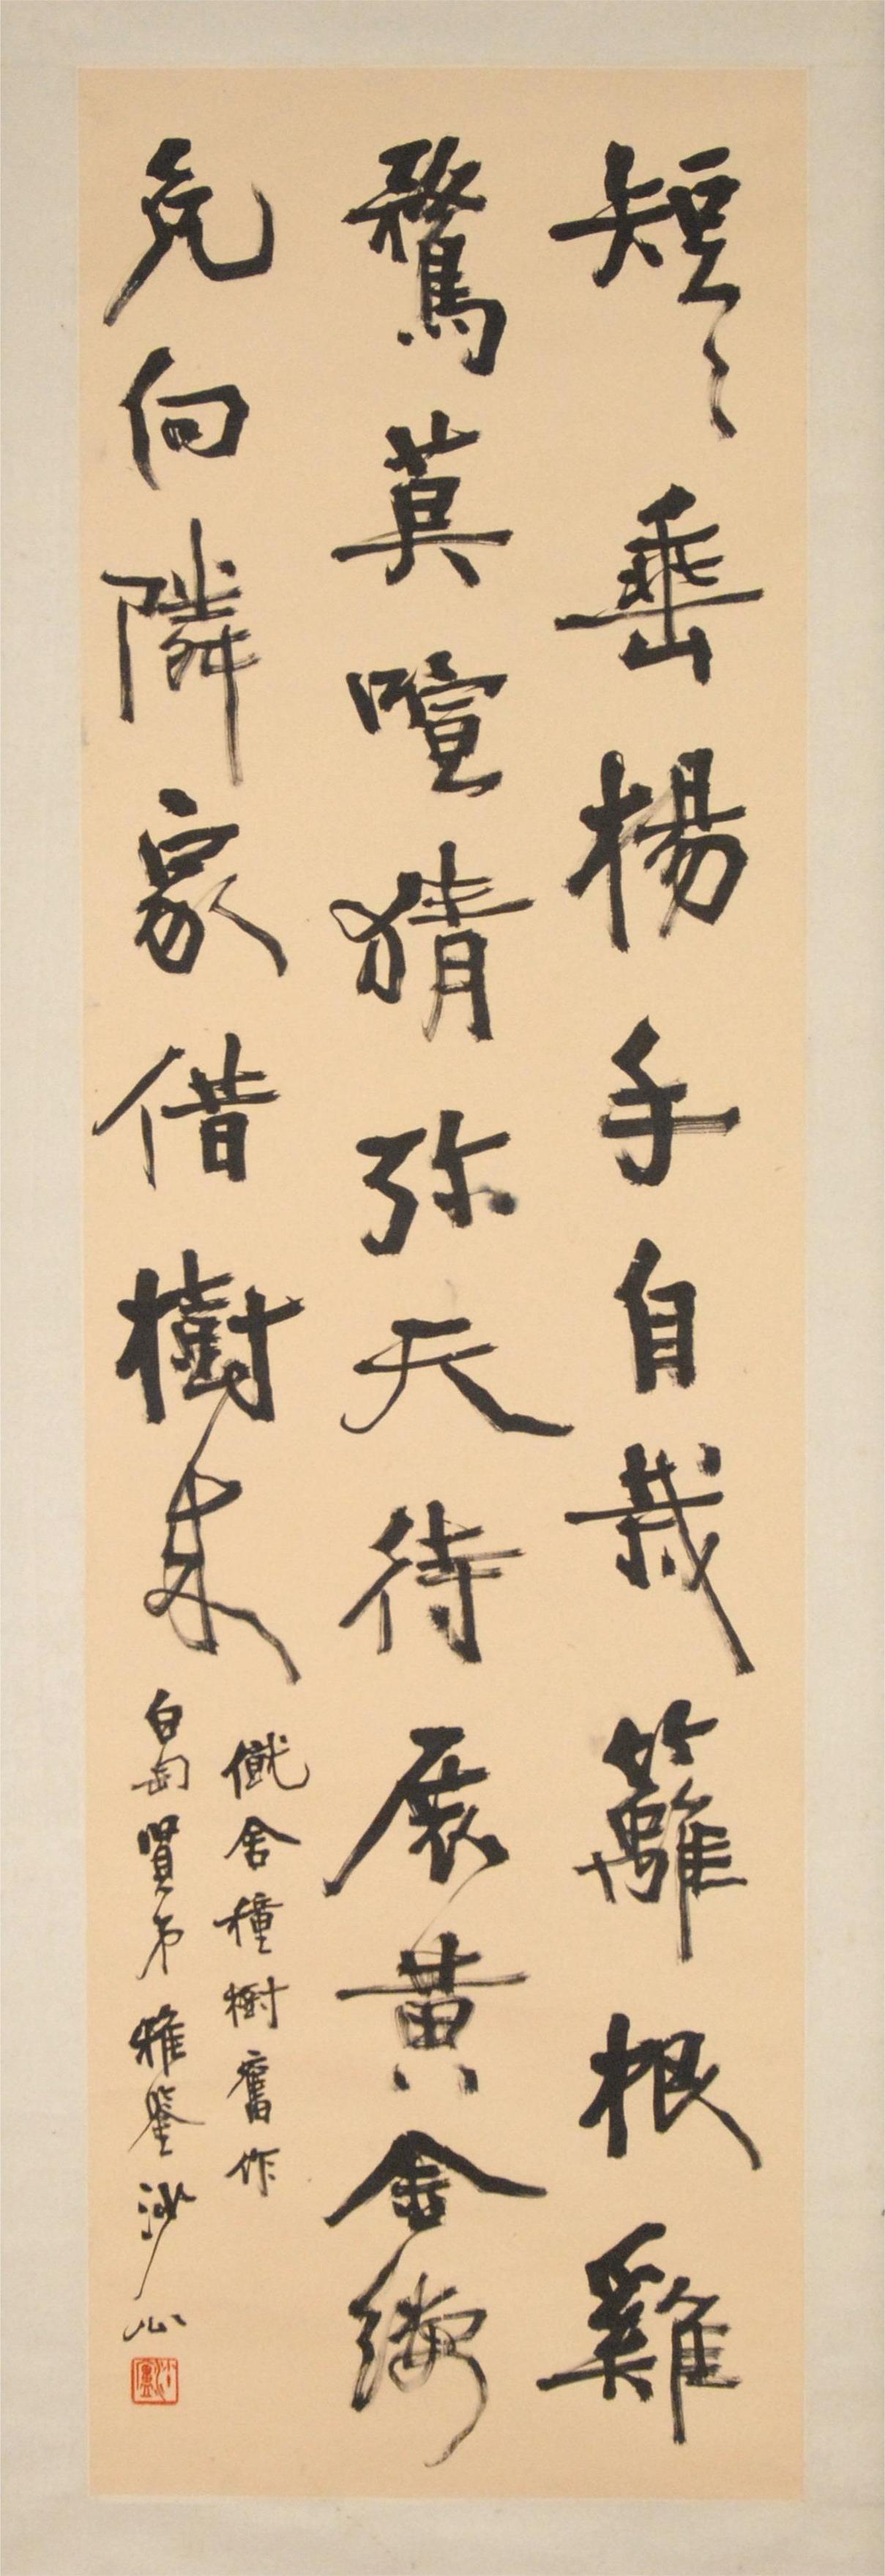 短々垂楊手自栽籬根雞
鶩莫喧猜弥天待展黃金縷
免向隣家借樹來
僦舍種樹舊作
白匋賢弟雅鑒沙公